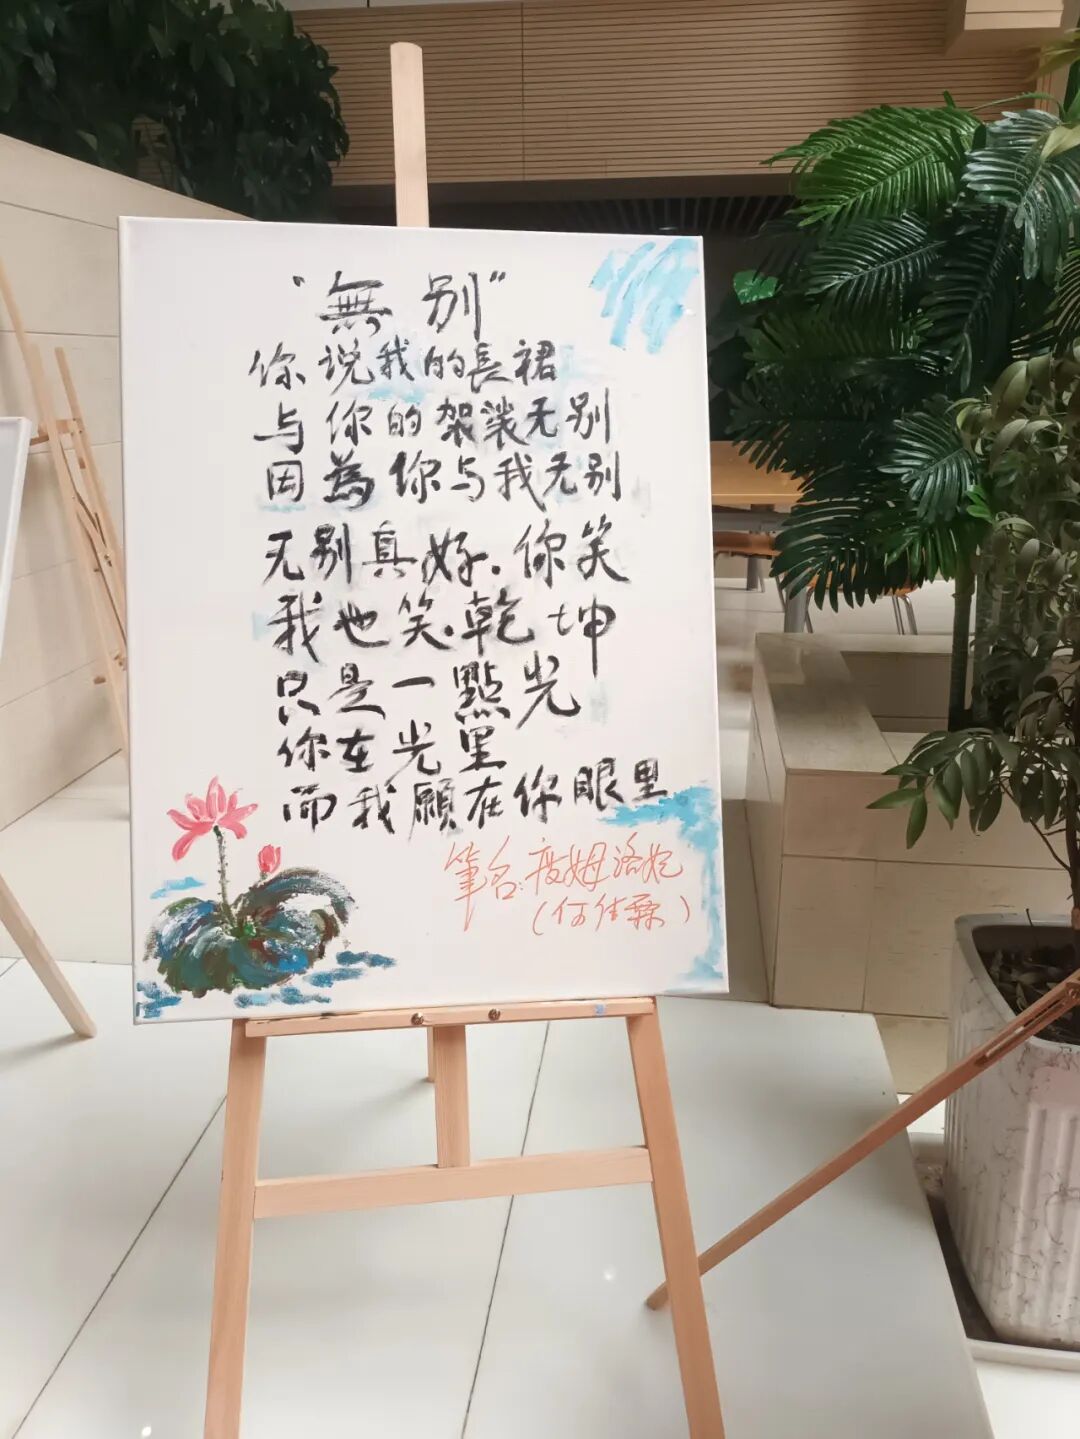 “無别”
你说我的長裙
与你的袈裟无别
因為你与我无别
无别真好.你笑
我也笑.乾坤
只是一點光
你在光里
而我願在你眼里
筆名:度姆洛妃
(何佳霖)